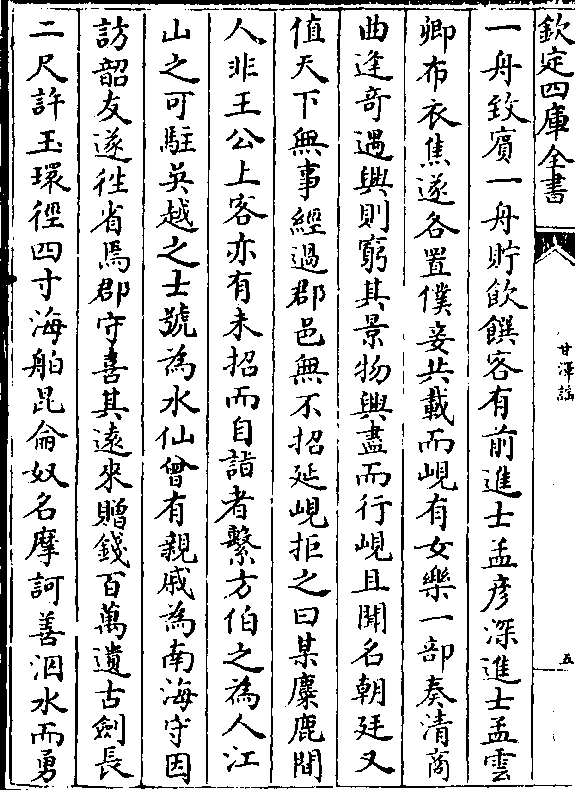 欽定四庫全書
甘澤謠
五
一舟致賓一舟貯飲饌客有前進士孟彦深進士孟雲
卿布衣焦遂各置僕妾共載而峴有女樂一部奏清商
曲逢奇遇興則窮其景物興盡而行峴且聞名朝廷又
值天下無事經過郡邑無不招延峴拒之曰某麋鹿間
人非王公上客亦有未招而自詣者繫方伯之為人江
山之可駐吳越之士號為水仙曾有親戚為南海守因
訪韶友遂徃省焉郡守喜其遠來贈錢百萬遺古劍長
二尺許玉環徑四寸海舶昆侖奴名摩訶善泅水而勇